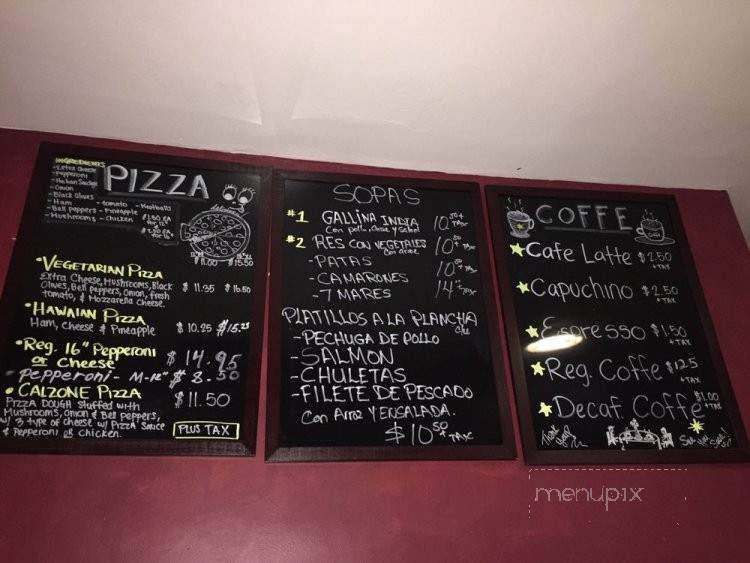 INGREDIENTS
-Extra Cheese
-Pepperoni
-Italian Sausage
-Onion
-Black Olives
-Ham
-Bell peppers
-Mushrooms
- tomato
- Pineapple
- Chicken
- Meatballs
PIZZA
11.00 15.50
•VEGETARIAN PIZZA
Extra Cheese, Mushrooms, Black
Olives, Bell peppers, Onion, fresh
tomato, & Mozzarella Cheese.
$ 11.35 $ 16.50
•HAWAIIAN PIZZA
Ham, Cheese & Pineapple
$ 10.25 $15.25
•Reg. 16" Pepperoni
or Cheese
$ 14.95
•pepperoni- M-12" $ 8.50
• CALZONE PIZZA
$ 11.50
PIZZA DOUGH Stuffed with
Mushrooms, Onion & Bell peppers,
w/ 3 type of cheese w/ Pizza Sauce
& Pepperoni OR Chicken.
PLUS TAX
SOPAS
#1 GALLINA INDIA 10.50+ TAX
Con pollo, Arroz y Salad
#2 RES CON VEGETALES 10.50+ TAX
con arroz
-PATAS 10.50+ TAX
-CAMARONES
-7 MARES 14+ TAX
PLATILLOS A LA PLANCHA
c/u
-PECHUGA DE POLLO
-SALMON
-CHULETAS
-FILETE DE PESCADO
Con Arroz Y ENSALADA.
$10.50 + TAX
COFFE
Cafe Latte $2.50
+TAX
Capuchino $2.50
+TAX
Espresso $1.50
+TAX
Reg. Coffe $1.25
+TAX
Decaf. Coffe $1.00
+TAX
menupix